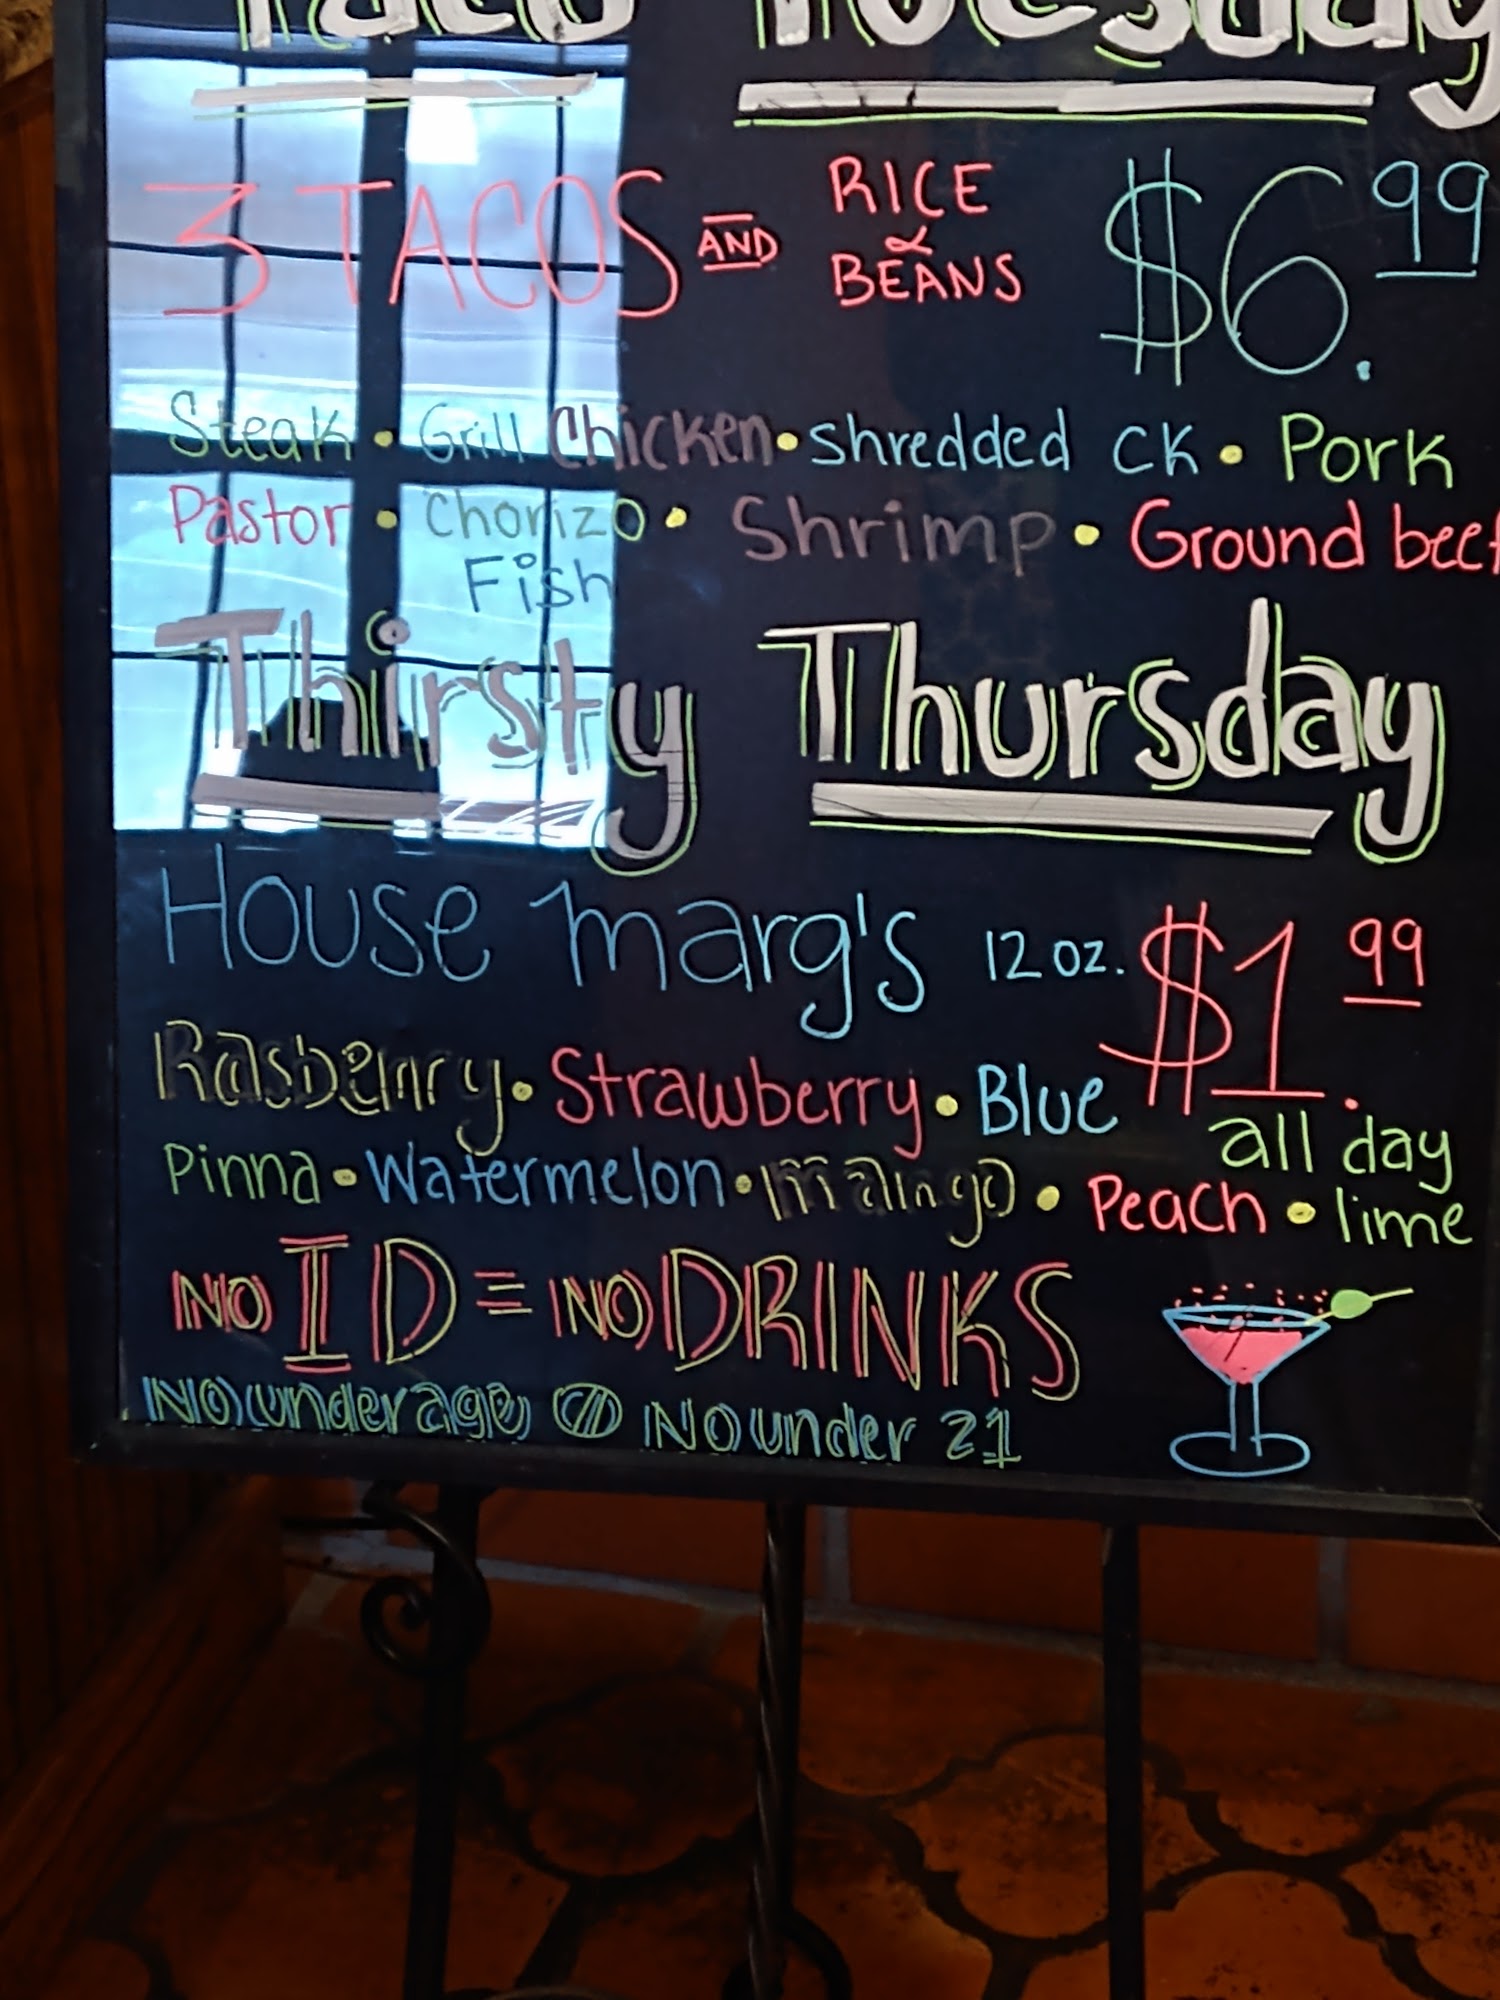 Taco Tuesday
3 TACOS AND RICE & BEANS $6.99
Steak • Grill Chicken • shredded CK • Pork
Pastor • Chorizo • Shrimp • Ground beef
Fish
Thirsty Thursday
House marg's 12 oz. $1.99
Rasberry • Strawberry • Blue
all day
Pinna • Watermelon • mango • Peach • lime
NO ID = NO DRINKS
NO underage NO under 21